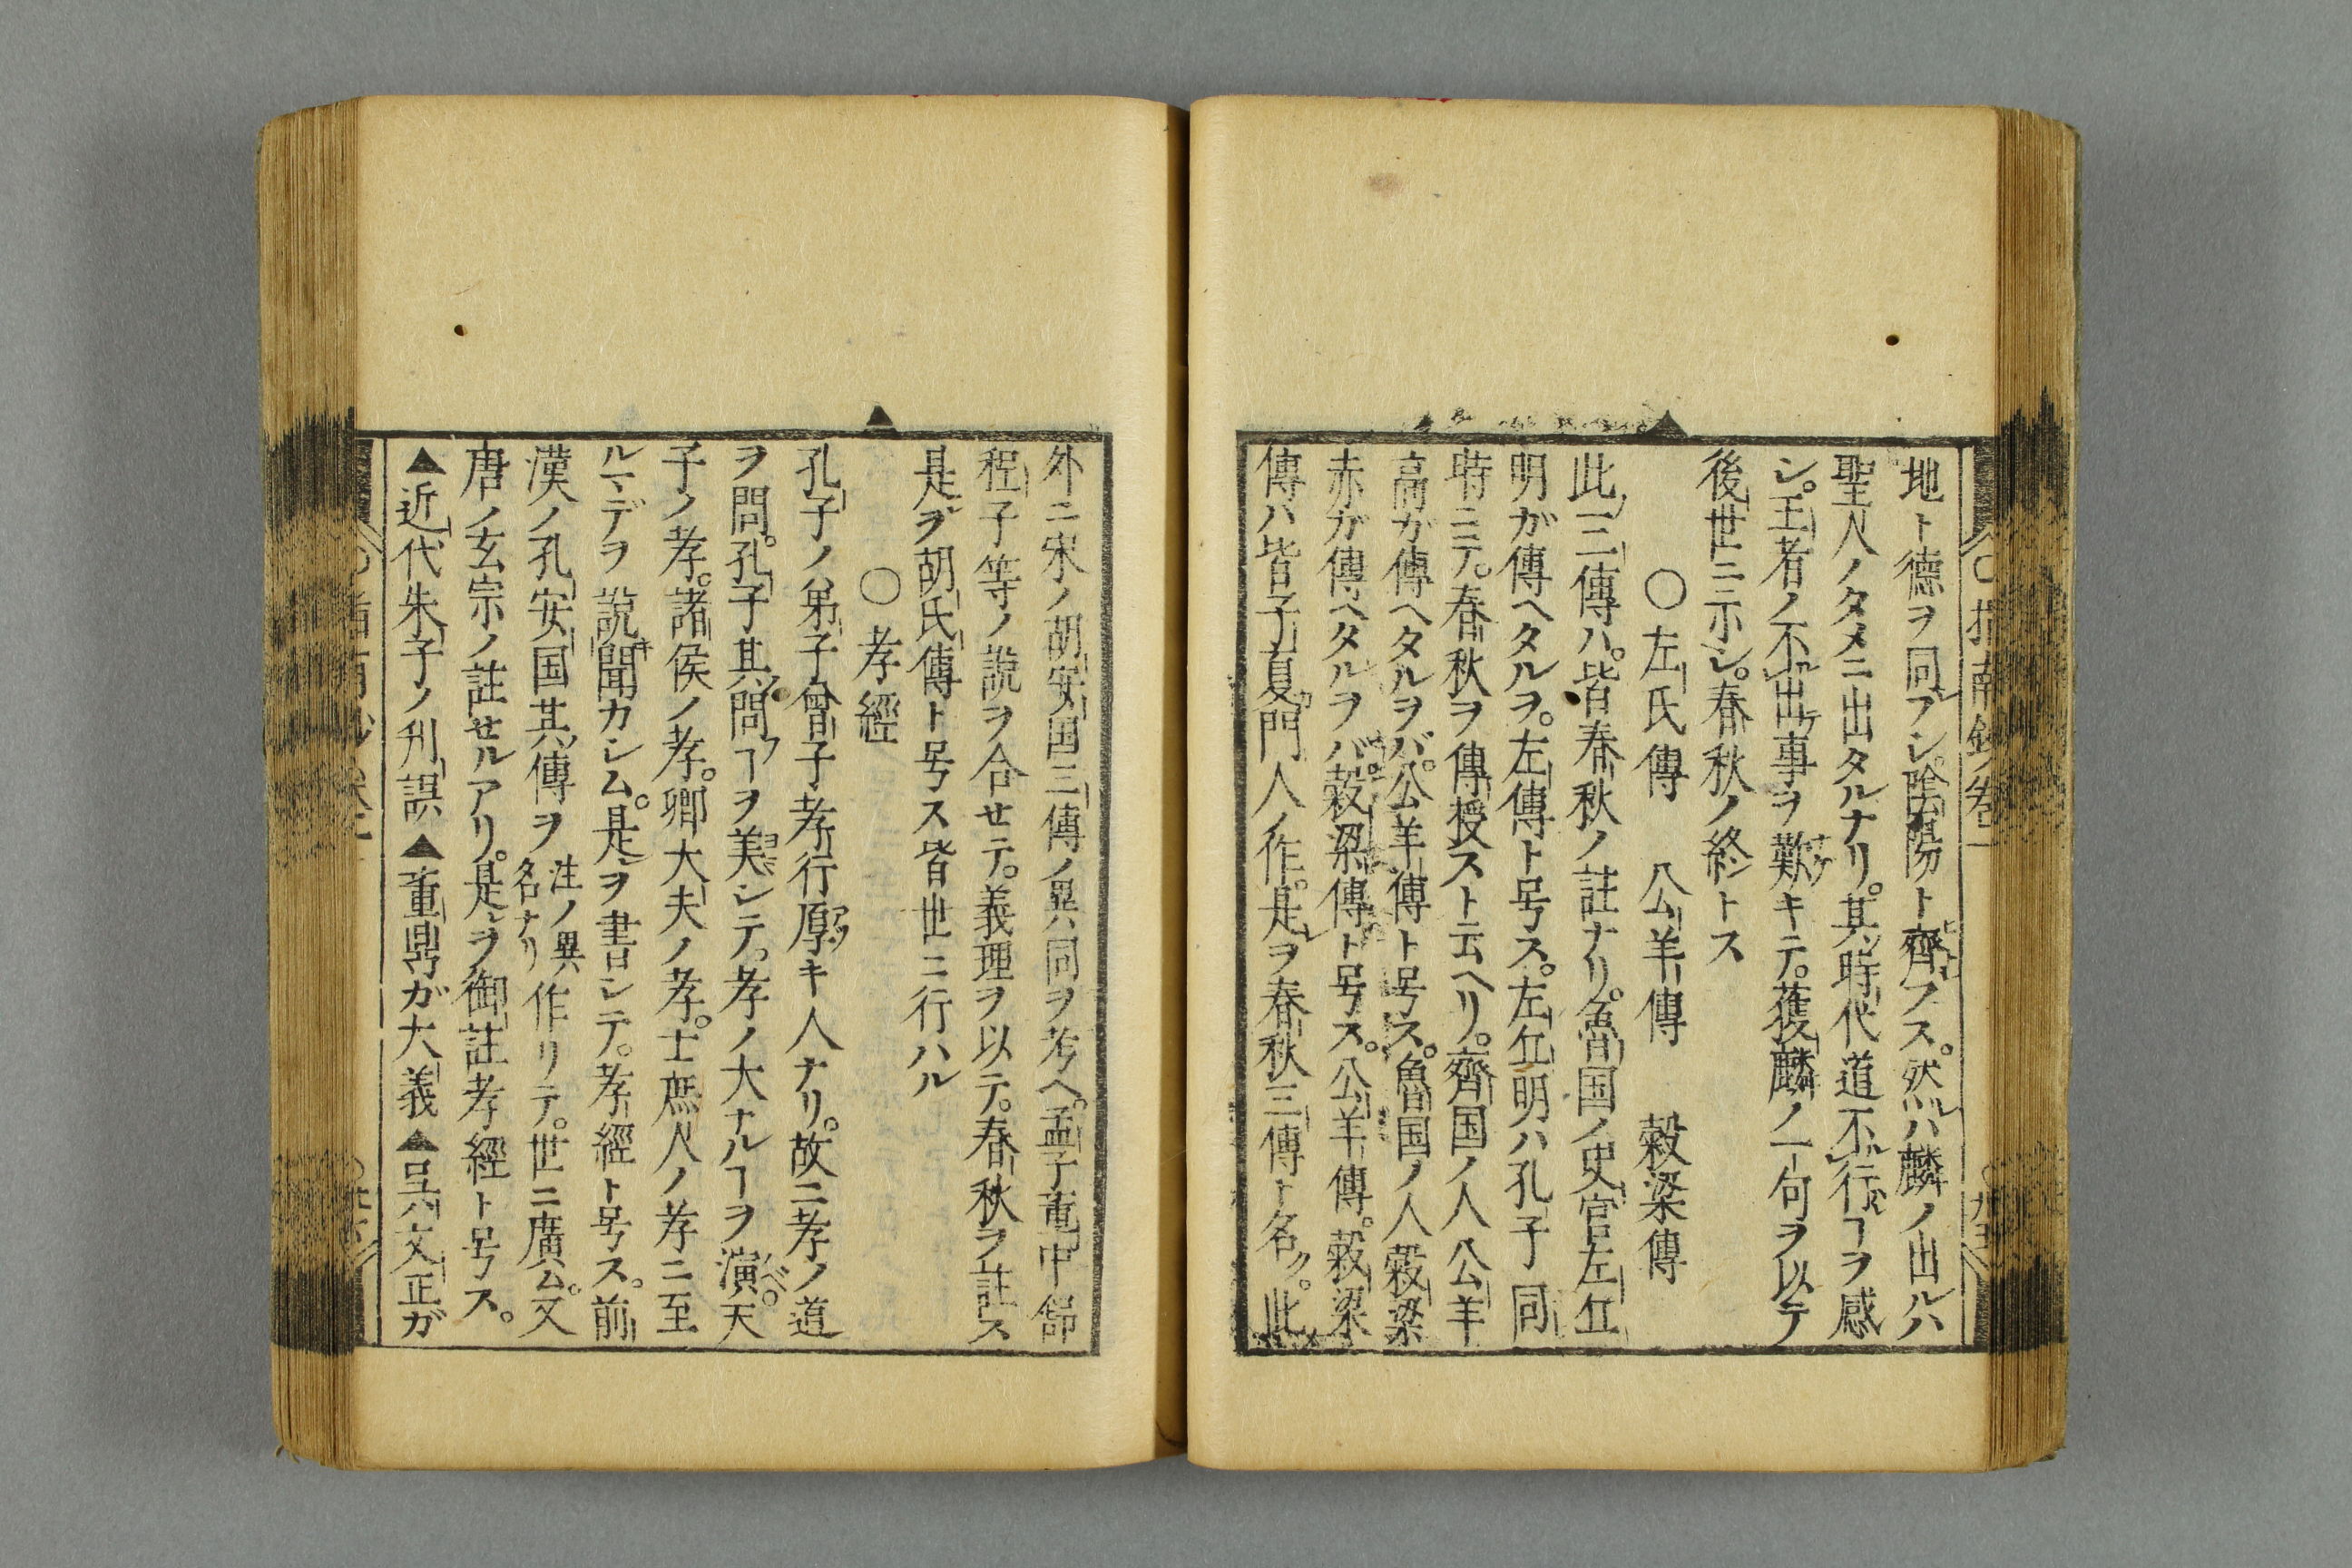 地ト德ヲ同フシ陰陽ト齊フス。然レハ麟ノ出ルハ
聖人ノタメニ出タルナリ。其時代道不行ヿヲ感
シ。王者ノ不出事ヲ歎キテ。獲麟ノ一句ヲ以テ
後世ニ示シ。春秋ノ終トス
○左氏傳 公羊傳 穀梁傳
此三傳ハ。皆春秋ノ註ナリ。魯国ノ史官左丘
明ガ傳ヘタルヲ。左傳ト号ス。左丘明ハ孔子同
時ニテ。春秋ヲ傳授スト云ヘリ。齊国ノ人公羊
高ガ傳ヘタルヲバ。公羊傳ト号ス。魯国ノ人穀梁
赤ガ傳ヘタルヲバ。穀梁傳ト号ス。公羊傳。穀梁
傳ハ皆子夏門人ノ作。是ヲ春秋三傳ト名ク。此
外ニ宋ノ胡安国三傳ノ異同ヲ考ヘ。孟子董中舒
程子等ノ説ヲ合セテ。義理ヲ以テ。春秋ヲ註ス
是ヲ胡氏傳ト号ス皆世ニ行ハル
○孝經
孔子ノ弟子曾子孝行原キ人ナリ。故ニ孝ノ道
ヲ問。孔子其問フヿヲ美シテ。孝ノ大ナルヿヲ演ベ。天
子ノ孝。諸侯ノ孝。卿大夫ノ孝。士庶人ノ孝ニ至
ルマデヲ説聞カシム。是ヲ書シテ。孝經ト号ス。前
漢ノ孔安国其傳ヲ注ノ異名ナリ作リテ。世ニ廣ム。又
唐ノ玄宗ノ註セルアリ。是ヲ御註孝經ト号ス。
▲近代朱子ノ刋誤▲董鼎ガ大義▲呉文正ガ